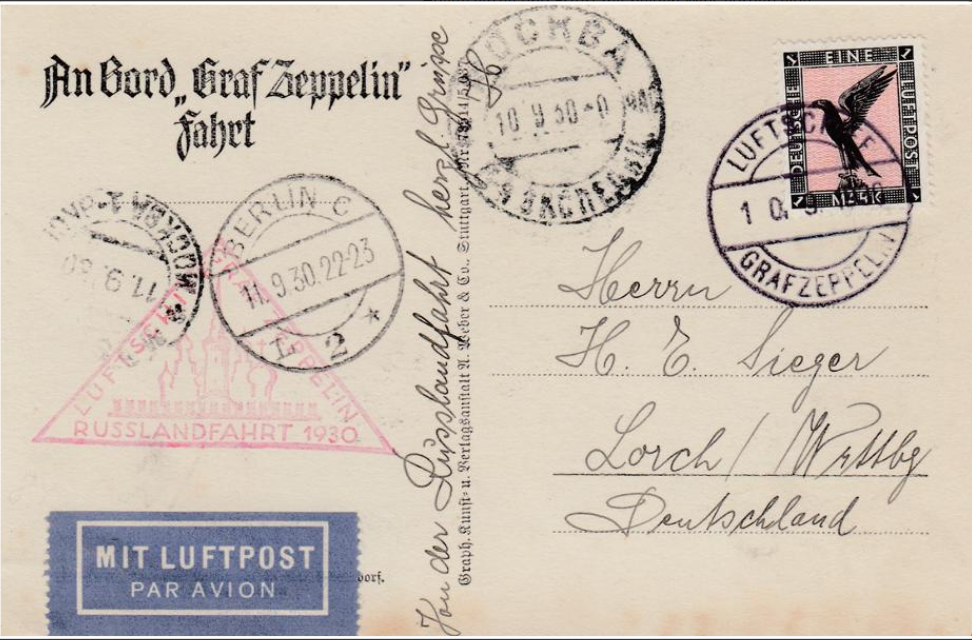 An Bord „Graf Zeppelin“
Fahrt
МОСКВА
10 9 30
EINE
DEUTSCHE
LUFTPOST
MARK
1
1
LUFTSCHIFF
1 0. 9.
GRAFZEPPELIN
МОСКВА
11.9.30
BERLIN C
11.9.30.22-23
L 2 *
LUFTSCHIFF GRAF ZEPPELIN
RUSSLANDFAHRT 1930
MIT LUFTPOST
PAR AVION
dorf.
Von der Russlandfahrt herzl. Grüsse
Graph. Kunst- u. Verlagsanstalt A. Weber & Co., Stuttgart
Herrn
H. E. Sieger
Lorch / Wttbg
Deutschland